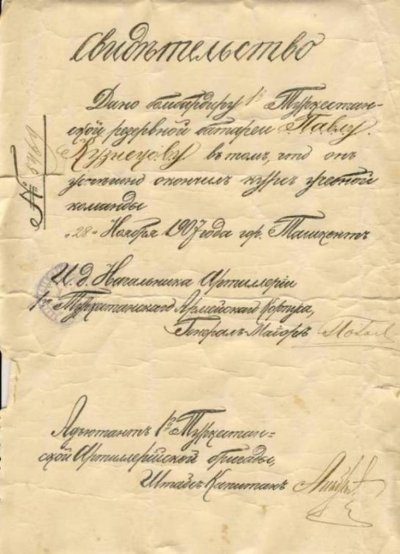 Свидѣтельство
Дано бомбардиру 1й Туркестан-
ской резервной батареи Павлу
Кузнецову въ томъ, что онъ
успешно окончилъ курсъ учебной
команды
"28" Ноября 1907 года гор. Ташкентъ
№ 5469
И. д. Начальника Артиллеріи
1го Туркестанскаго Армейскаго Корпуса,
Генералъ-Маіоръ
Адъютантъ 1й Туркестан-
ской Артиллерійской бригады,
Штабсъ-Капитанъ